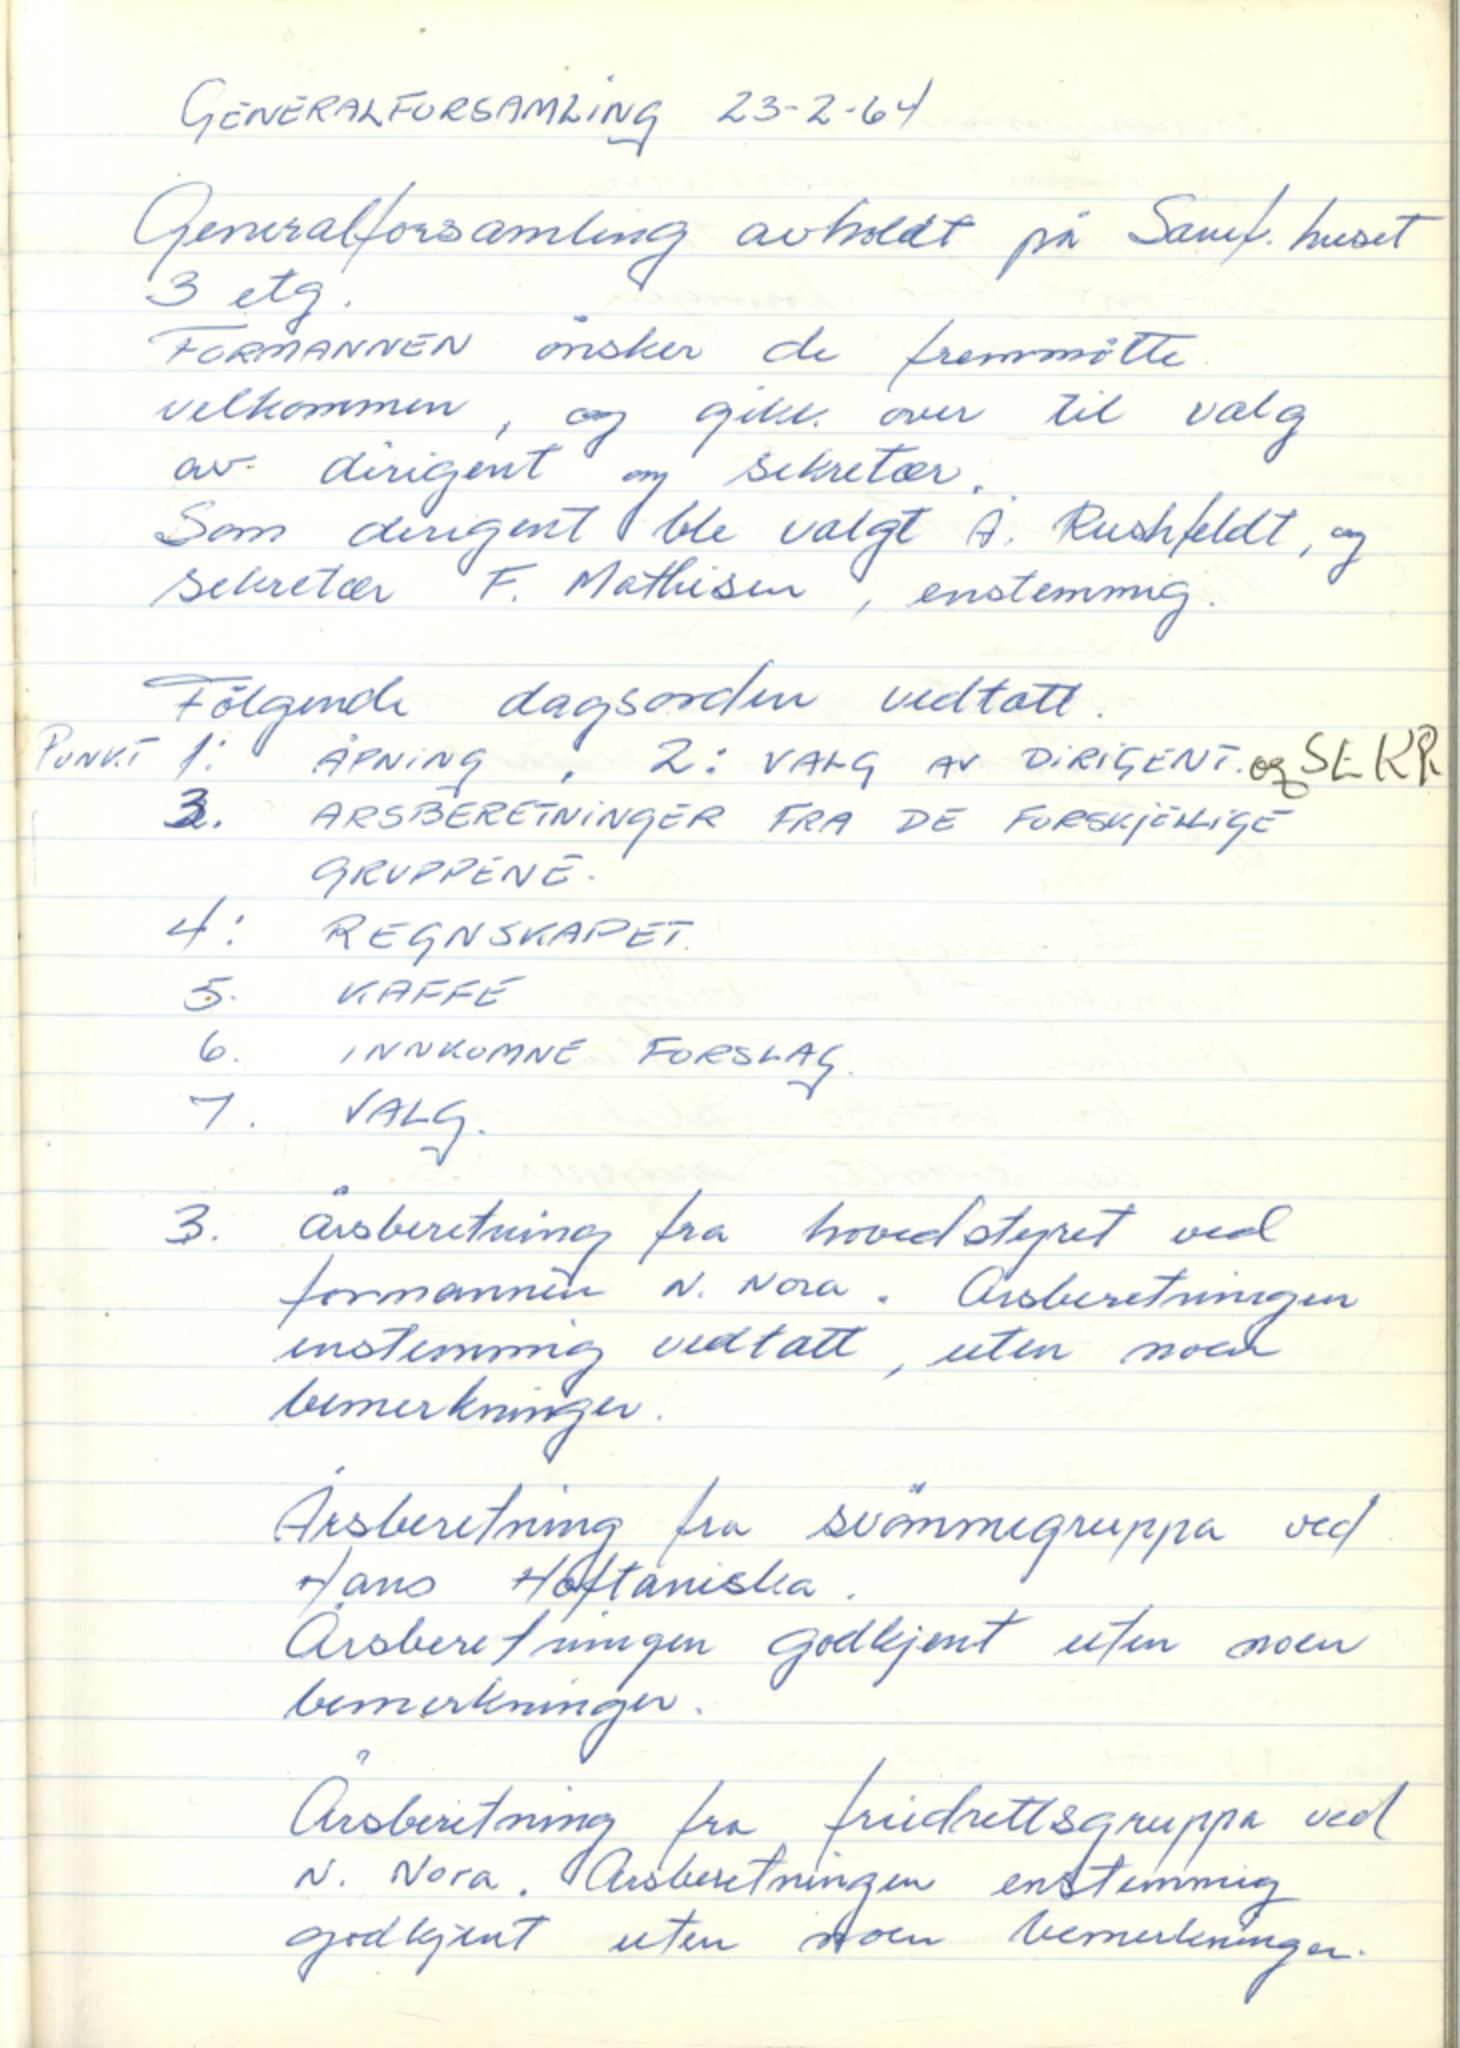 GENERALFORSAMLING 23-2-64
Generalforsamling avholdt på Samf. huset
3 etg.
FORMANNEN önsker de fremmötte
velkommen, og gikk over til valg
av dirigent og sekretær.
Som dirigent ble valgt Å. Rushfeldt, og
sekretær F. Mathisen, enstemmig.
Fölgende dagsorden vedtatt.
PUNKT 1: ÅPNING, 2: VALG AV DIRIGENT. og SEKR.
3. ÅRSBERETNINGER FRA DE FORSKJELLIGE
GRUPPENE.
4: REGNSKAPET.
5. KAFFE
6. INNKOMNE FORSLAG.
7. VALG.
3. Årsberetning fra hovedstyret ved
formannen N. Nora. Årsberetningen
enstemmig vedtatt, uten noen
bemerkninger.
Årsberetning fra svömmegruppa ved
Hans Hoftaniska.
Årsberetningen godkjent uten noen
bemerkninger.
Årsberetning fra friidrettsgruppa ved
N. Nora. Årsberetningen enstemmig
godkjent uten noen bemerkninger.